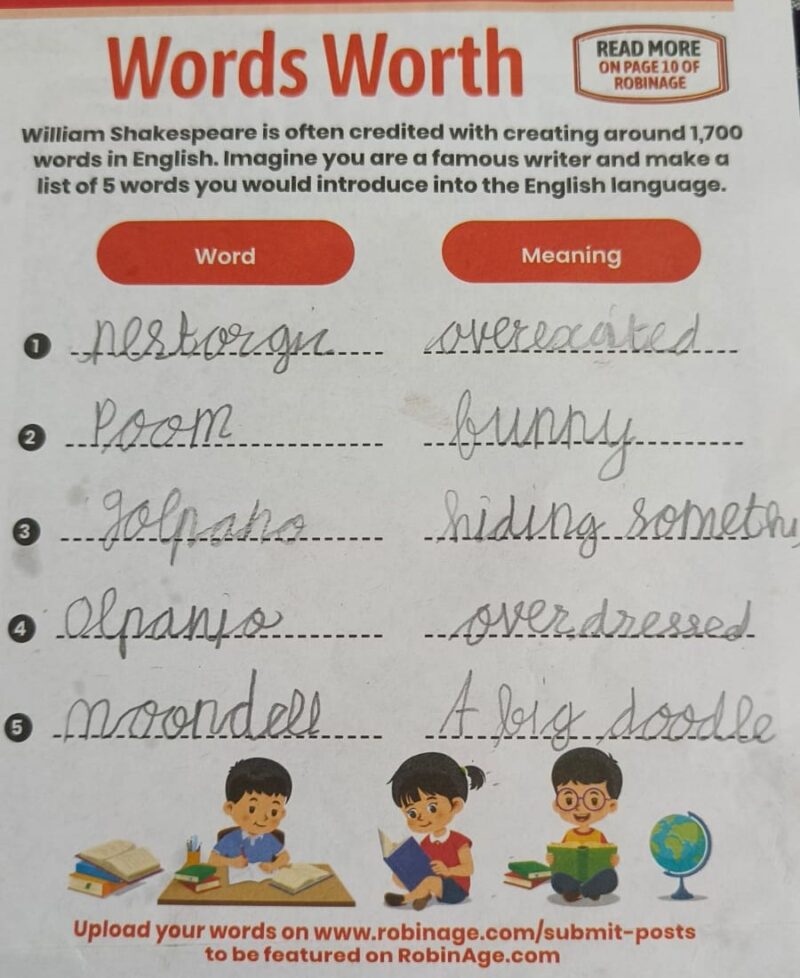 Words Worth
READ MORE
ON PAGE 10 OF
ROBINAGE
William Shakespeare is often credited with creating around 1,700
words in English. Imagine you are a famous writer and make a
list of 5 words you would introduce into the English language.
Word Meaning
1 nestorgu overexcited
2 Poom funny
3 golpano hiding somethi
4 Olpanjo overdressed
5 noondell A big doodle
Upload your words on www.robinage.com/submit-posts
to be featured on RobinAge.com